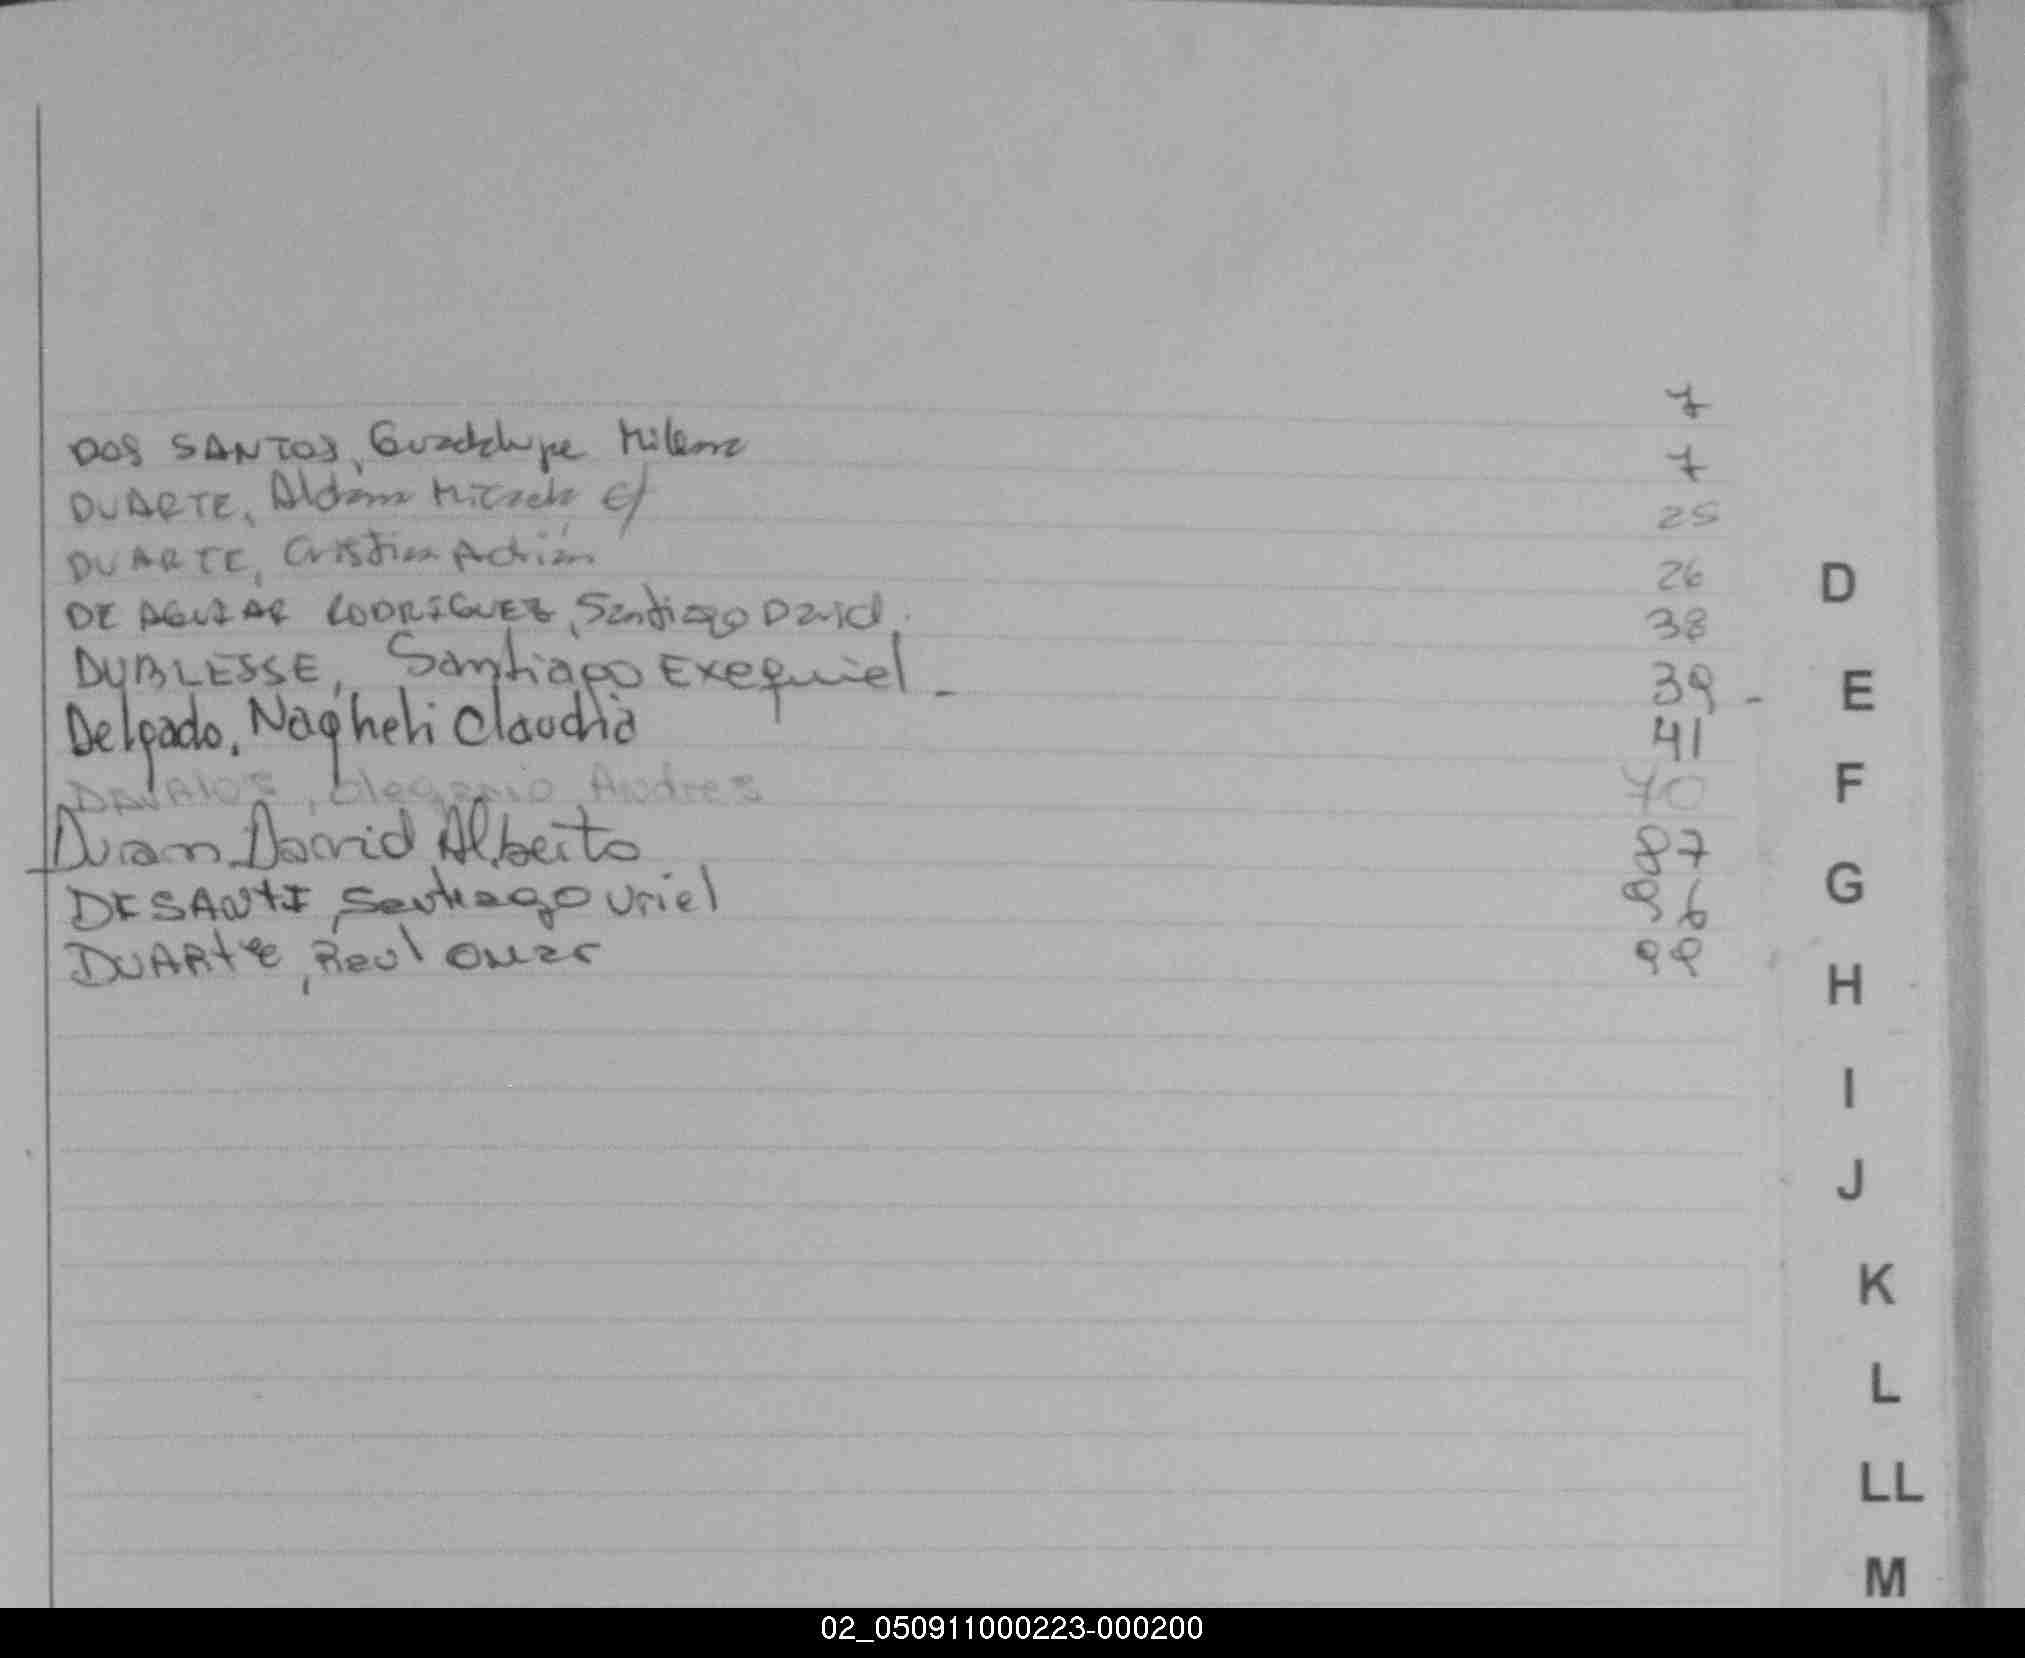 DOS SANTOS, Guadalupe Milena 7
DUARTE, Aldana Micaela 7
DUARTE, Cristian Adrián 25
DE AGUIAR RODRIGUEZ, Santiago David. 26
DUBLESSE, Santiago Exequiel - 38
Delgado, Nagheli Claudia 39 -
DAVALOS, Olegario Andres 41
Duran David Alberto 70
DESANTI, Santiago Uriel 87
DUARTE, Raul Omar 96
99
D
E
F
G
H
I
J
K
L
LL
M
02_050911000223-000200